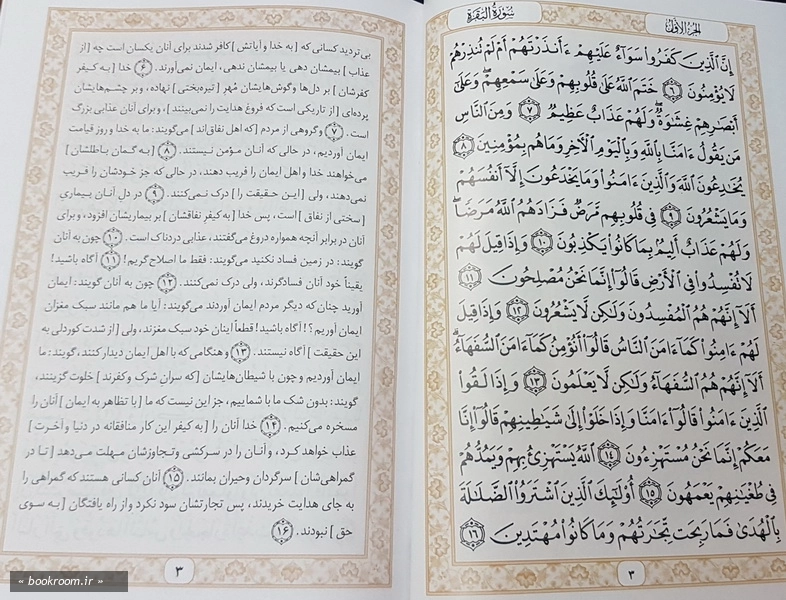 الجزء الأول
سورة البقرة
إِنَّ ٱلَّذِينَ كَفَرُوا۟ سَوَآءٌ عَلَيْهِمْ ءَأَنذَرْتَهُمْ أَمْ لَمْ تُنذِرْهُمْ
لَا يُؤْمِنُونَ ۝٦ خَتَمَ ٱللَّهُ عَلَىٰ قُلُوبِهِمْ وَعَلَىٰ سَمْعِهِمْ ۖ وَعَلَىٰٓ
أَبْصَٰرِهِمْ غِشَٰوَةٌ ۖ وَلَهُمْ عَذَابٌ عَظِيمٌ ۝٧ وَمِنَ ٱلنَّاسِ
مَن يَقُولُ ءَامَنَّا بِٱللَّهِ وَبِٱلْيَوْمِ ٱلْءَاخِرِ وَمَا هُم بِمُؤْمِنِينَ ۝٨
يُخَٰدِعُونَ ٱللَّهَ وَٱلَّذِينَ ءَامَنُوا۟ وَمَا يَخْدَعُونَ إِلَّآ أَنفُسَهُمْ
وَمَا يَشْعُرُونَ ۝٩ فِى قُلُوبِهِم مَّرَضٌ فَزَادَهُمُ ٱللَّهُ مَرَضًا ۖ
وَلَهُمْ عَذَابٌ أَلِيمٌۢ بِمَا كَانُوا۟ يَكْذِبُونَ ۝١٠ وَإِذَا قِيلَ لَهُمْ
لَا تُفْسِدُوا۟ فِى ٱلْأَرْضِ قَالُوٓا۟ إِنَّمَا نَحْنُ مُصْلِحُونَ ۝١١
أَلَآ إِنَّهُمْ هُمُ ٱلْمُفْسِدُونَ وَلَٰكِن لَّا يَشْعُرُونَ ۝١٢ وَإِذَا قِيلَ
لَهُمْ ءَامِنُوا۟ كَمَآ ءَامَنَ ٱلنَّاسُ قَالُوٓا۟ أَنُؤْمِنُ كَمَآ ءَامَنَ ٱلسُّفَهَآءُ ۗ
أَلَآ إِنَّهُمْ هُمُ ٱلسُّفَهَآءُ وَلَٰكِن لَّا يَعْلَمُونَ ۝١٣ وَإِذَا لَقُوا۟
ٱلَّذِينَ ءَامَنُوا۟ قَالُوٓا۟ ءَامَنَّا وَإِذَا خَلَوْا۟ إِلَىٰ شَيَٰطِينِهِمْ قَالُوٓا۟ إِنَّا
مَعَكُمْ إِنَّمَا نَحْنُ مُسْتَهْزِءُونَ ۝١٤ ٱللَّهُ يَسْتَهْزِئُ بِهِمْ وَيَمُدُّهُمْ
فِى طُغْيَٰنِهِمْ يَعْمَهُونَ ۝١٥ أُو۟لَٰٓئِكَ ٱلَّذِينَ ٱشْتَرَوُا۟ ٱلضَّلَٰلَةَ
بِٱلْهُدَىٰ فَمَا رَبِحَت تِّجَٰرَتُهُمْ وَمَا كَانُوا۟ مُهْتَدِينَ ۝١٦
٣
بی تردید کسانی که [به خدا و آیاتش] کافر شدند برای آنان یکسان است چه [از
عذاب] بیمشان دهی یا بیمشان ندهی، ایمان نمی‌آورند. (۶) خدا [به کیفر
کفرشان] بر دل‌ها و گوش‌هایشان مُهر [تیره‌بختی] نهاده، و بر چشم‌هایشان
پرده‌ای [از تاریکی است که فروغ هدایت را نمی‌بینند]، و برای آنان عذابی بزرگ
است. (۷) و گروهی از مردم [که اهل نفاق‌اند] می‌گویند: ما به خدا و روز قیامت
ایمان آوردیم، در حالی که آنان مؤمن نیستند. (۸) [به گمان باطلشان]
می‌خواهند خدا و اهل ایمان را فریب دهند، در حالی که جز خودشان را فریب
نمی‌دهند، ولی [این حقیقت را] درک نمی‌کنند. (۹) در دلِ آنان بیماری
[سختی از نفاق] است، پس خدا [به کیفر نفاقشان] بر بیماریشان افزود، و برای
آنان در برابر آنچه همواره دروغ می‌گفتند، عذابی دردناک است. (۱۰) چون به آنان
گویند: در زمین فساد نکنید می‌گویند: فقط ما اصلاح‌گریم! (۱۱) آگاه باشید!
یقیناً خود آنان فسادگرند، ولی درک نمی‌کنند. (۱۲) چون به آنان گویند: ایمان
آورید چنان که دیگر مردم ایمان آوردند می‌گویند: آیا ما هم مانند سبک مغزان
ایمان آوریم؟! آگاه باشید! قطعاً اینان خود سبک مغزند، ولی [از شدت کوردلی به
این حقیقت] آگاه نیستند. (۱۳) و هنگامی که با اهل ایمان دیدار کنند، گویند: ما
ایمان آوردیم و چون با شیطان‌هایشان [که سران شرک و کفرند] خلوت گزینند،
گویند: بدون شک ما با شماییم، جز این نیست که ما [با تظاهر به ایمان] آنان را
مسخره می‌کنیم. (۱۴) خدا آنان را [به کیفر این کار منافقانه در دنیا و آخرت]
عذاب خواهد کرد، و آنان را در سرکشی و تجاوزشان مهلت می‌دهد [تا در
گمراهی‌شان] سرگردان و حیران بمانند. (۱۵) آنان کسانی هستند که گمراهی را
به جای هدایت خریدند، پس تجارتشان سود نکرد و از راه یافتگان [به سوی
حق] نبودند. (۱۶)
۳
« bookroom.ir »